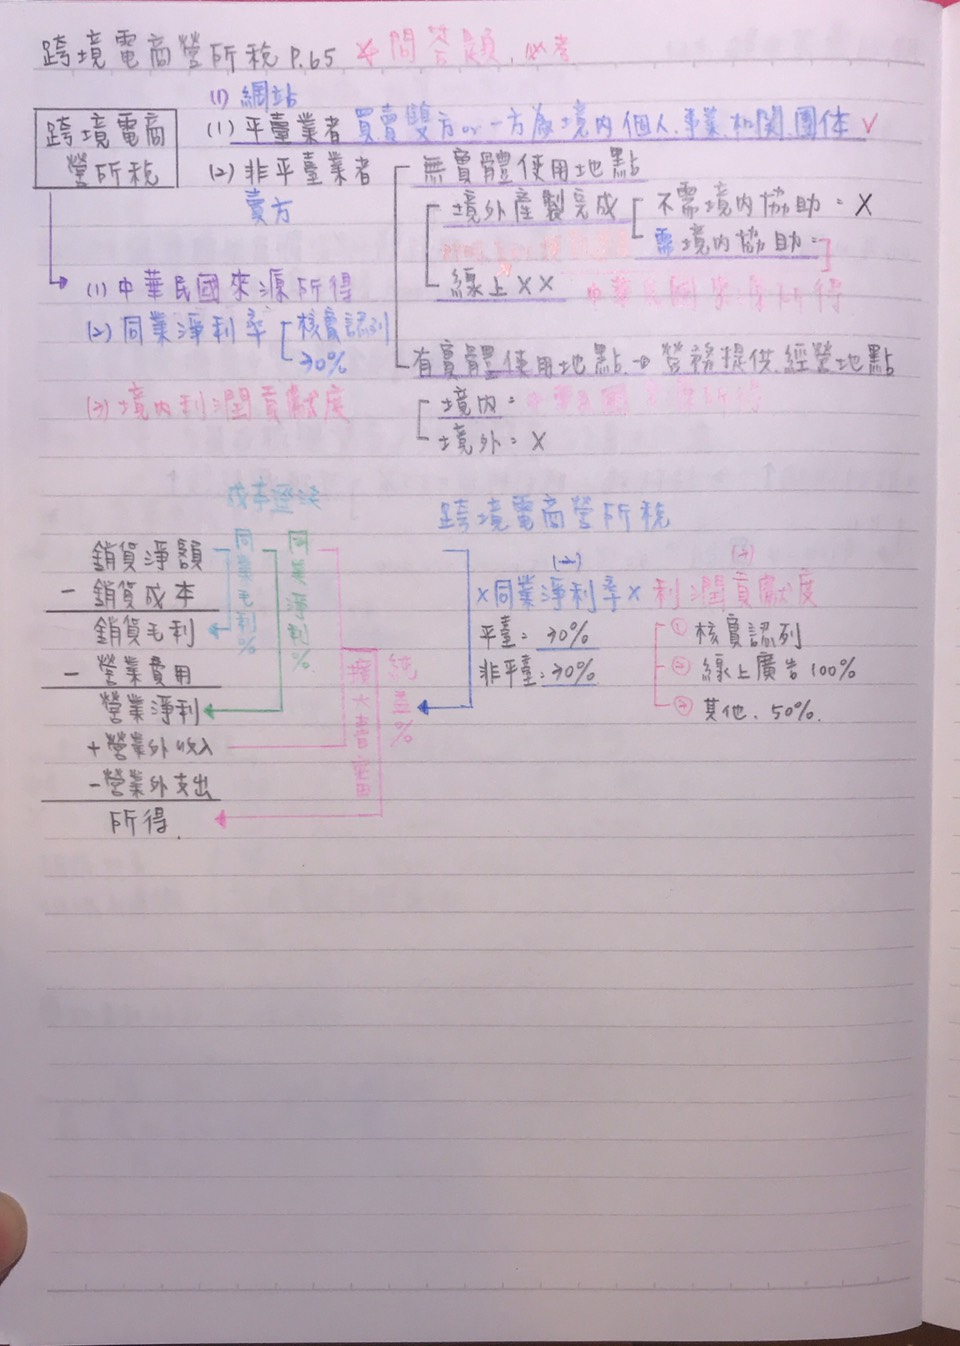 跨境電商營所稅 P.65 問答題.必考
(1) 網站
跨境電商營所稅
(1) 平臺業者 買賣雙方 or 一方為境內個人.事業.機關.團体 ✓
(2) 非平臺業者
賣方
無實體使用地點
境外產製完成
不需境內協助 = X
需境內協助 =
線上XX
中華民國來源所得
有實體使用地點 → 勞務提供.經營地點
境內 = 中華民國來源所得
境外 = X
(1) 中華民國來源所得
(2) 同業淨利率
核實認列
30%
(3) 境內利潤貢獻度
銷貨淨額
- 銷貨成本
銷貨毛利
- 營業費用
營業淨利
+ 營業外收入
- 營業外支出
所得.
同業毛利%
同業淨利%
擴大書審
純益%
跨境電商營所稅
(2) (3)
x 同業淨利率 x 利潤貢獻度
平臺: 30%
非平臺: 30%
① 核實認列
② 線上廣告 100%
③ 其他. 50%.